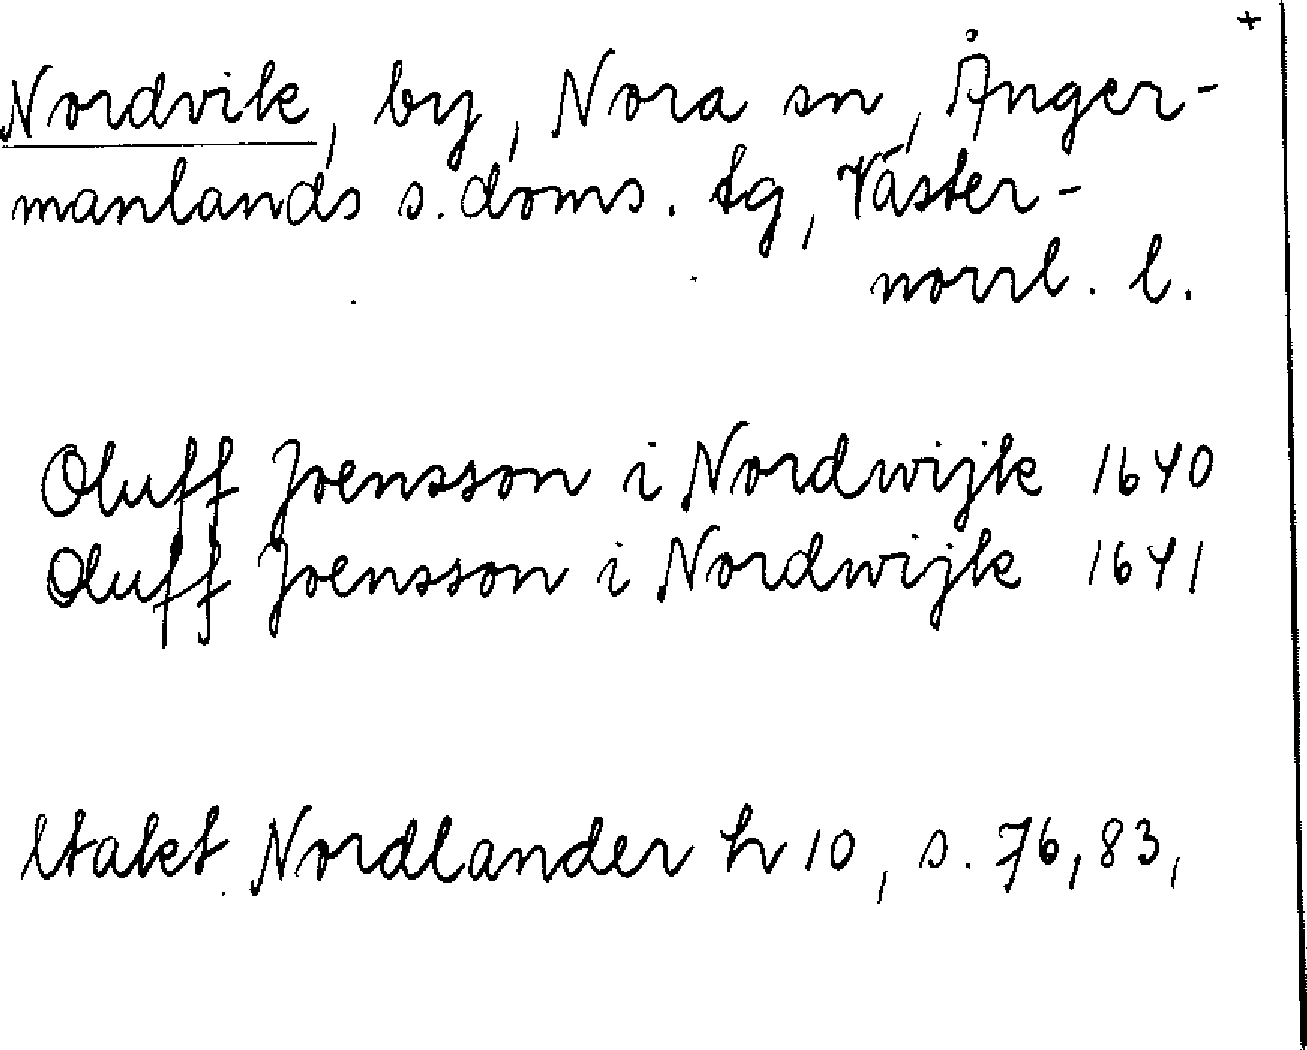 +
Nordvik, by, Nora sn, Ånger-
manlands s. doms. tg, Väster-
norrl. l.
Oluff Joensson i Nordwijk 1640
Oluff Joensson i Nordwijk 1641
Utakt Nordlander h 10, s. 76, 83,